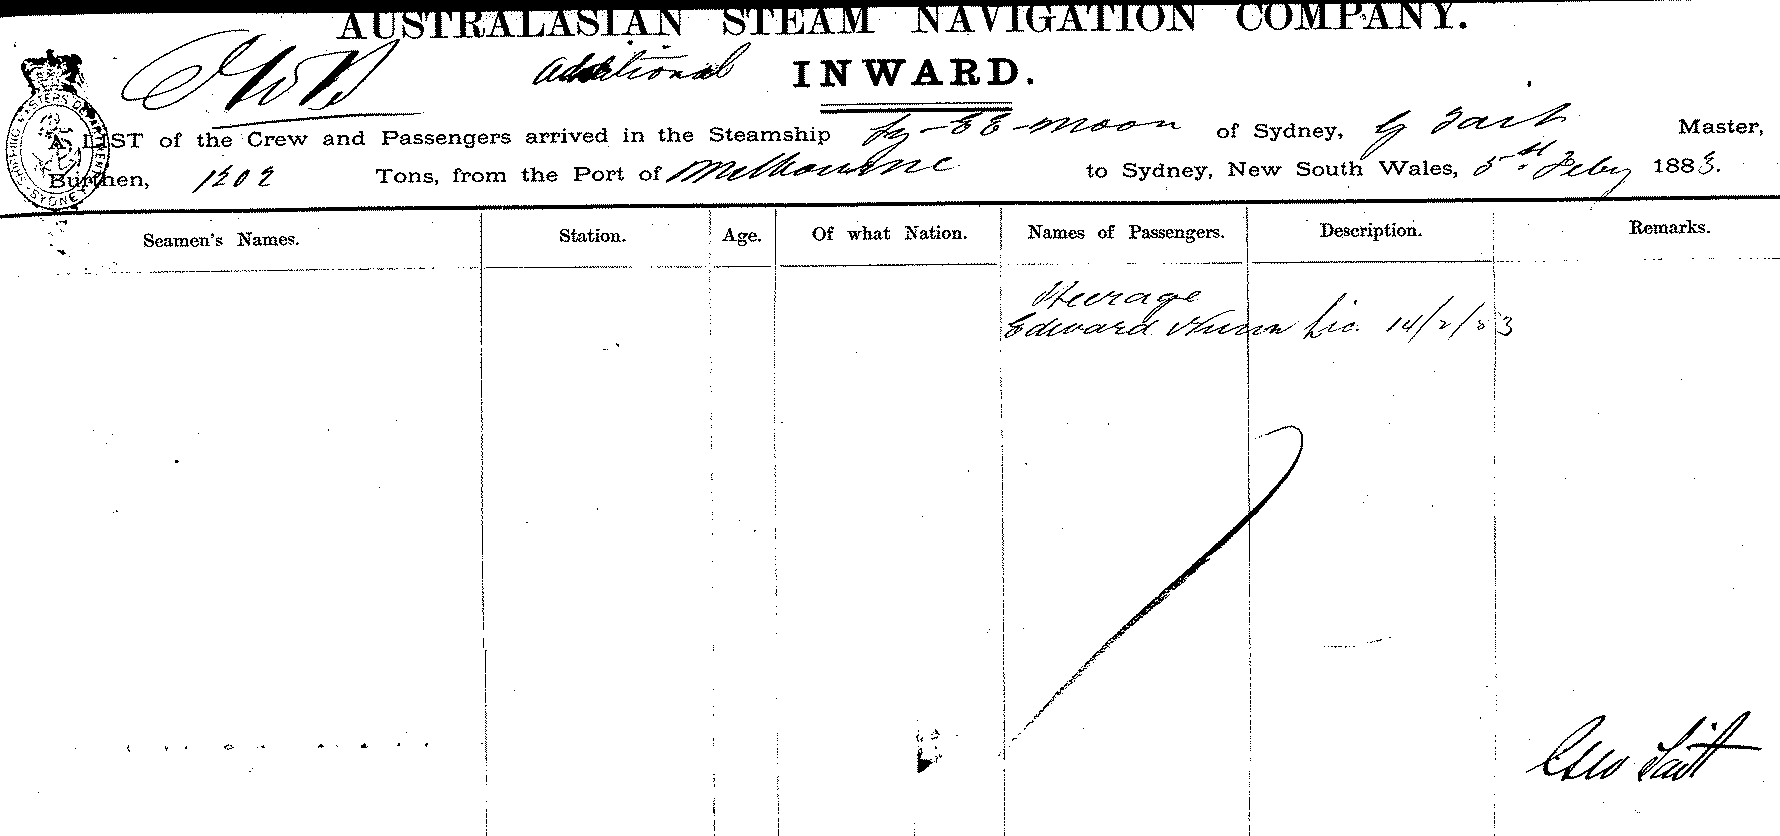 AUSTRALASIAN STEAM NAVIGATION COMPANY.
Additional INWARD.
A LIST of the Crew and Passengers arrived in the Steamship Ly-EE-Moon of Sydney, G Tait Master,
Burthen, 1202 Tons, from the Port of Melbourne to Sydney, New South Wales, 5th Feby 1883.
Seamen's Names. Station. Age. Of what Nation. Names of Passengers. Description. Remarks.
Steerage
Edward 14/2/83
Geo Tait
SHIPPING MASTERS DEPARTMENT SYDNEY